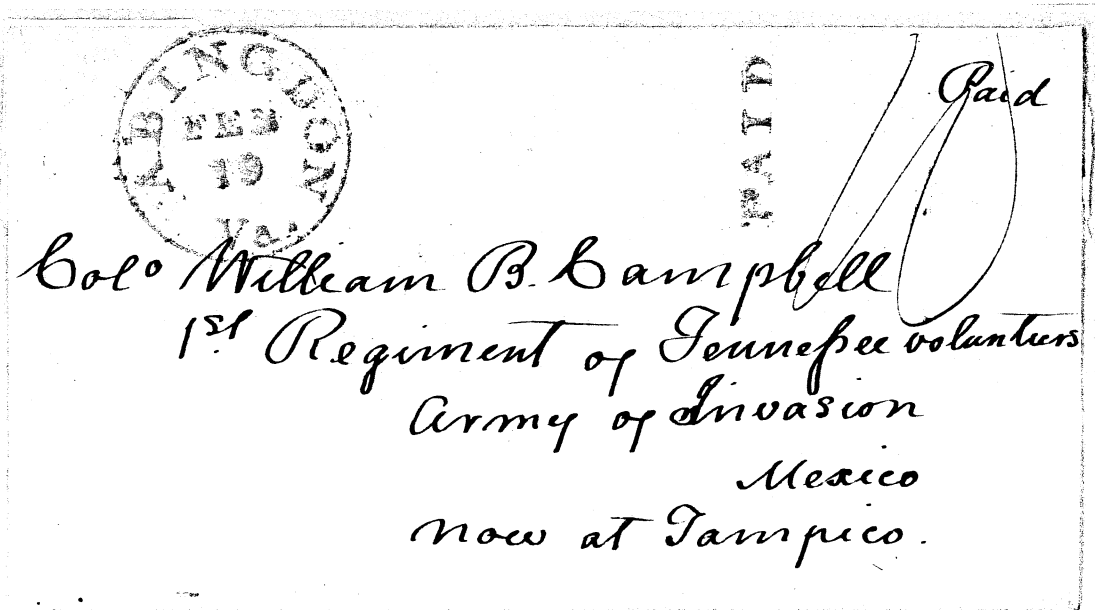 ABINGDON
FEB
19
Va.
PAID
Paid
10
Colo William B. Campbell
1st. Regiment of Tennessee volunteers
Army of Invasion
Mexico
now at Tampico.